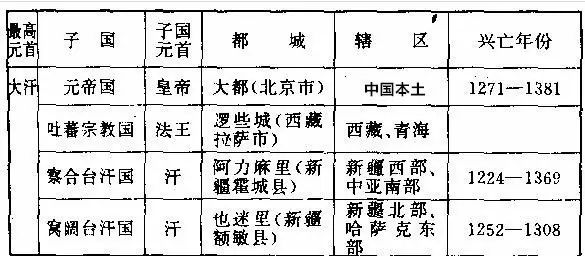 最高元首 子国 子国元首 都城 辖区 兴亡年份
大汗 元帝国 皇帝 大都(北京市) 中国本土 1271—1381
吐蕃宗教国 法王 逻些城(西藏拉萨市) 西藏、青海
察合台汗国 汗 阿力麻里(新疆霍城县) 新疆西部、中亚南部 1224—1369
窝阔台汗国 汗 也迷里(新疆额敏县) 新疆北部、哈萨克东部 1252—1308